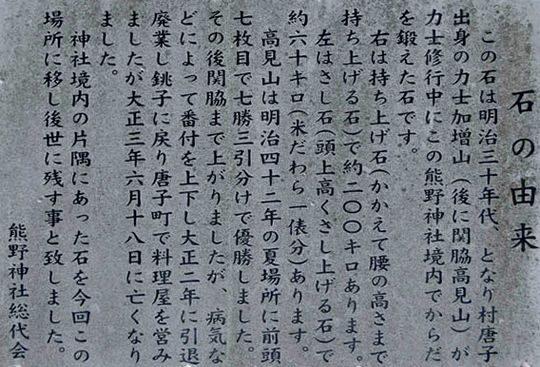 石の由来
この石は明治三十年代、となり村唐子
出身の力士加増山（後に関脇高見山）が
力士修行中にこの熊野神社境内でからだ
を鍛えた石です。
右は持ち上げ石(かかえて腰の高さまで
持ち上げる石)で約二〇〇キロあります。
左はさし石(頭上高くさし上げる石)で
約六十キロ(米だわら一俵分)あります。
高見山は明治四十二年の夏場所に前頭
七枚目で七勝三引分けで優勝しました。
その後関脇まで上がりましたが、病気な
どによって番付を上下し大正二年に引退
廃業し銚子に戻り唐子町で料理屋を営み
ましたが大正三年六月十八日に亡くなり
ました。
神社境内の片隅にあった石を今回この
場所に移し後世に残す事と致しました。
熊野神社総代会